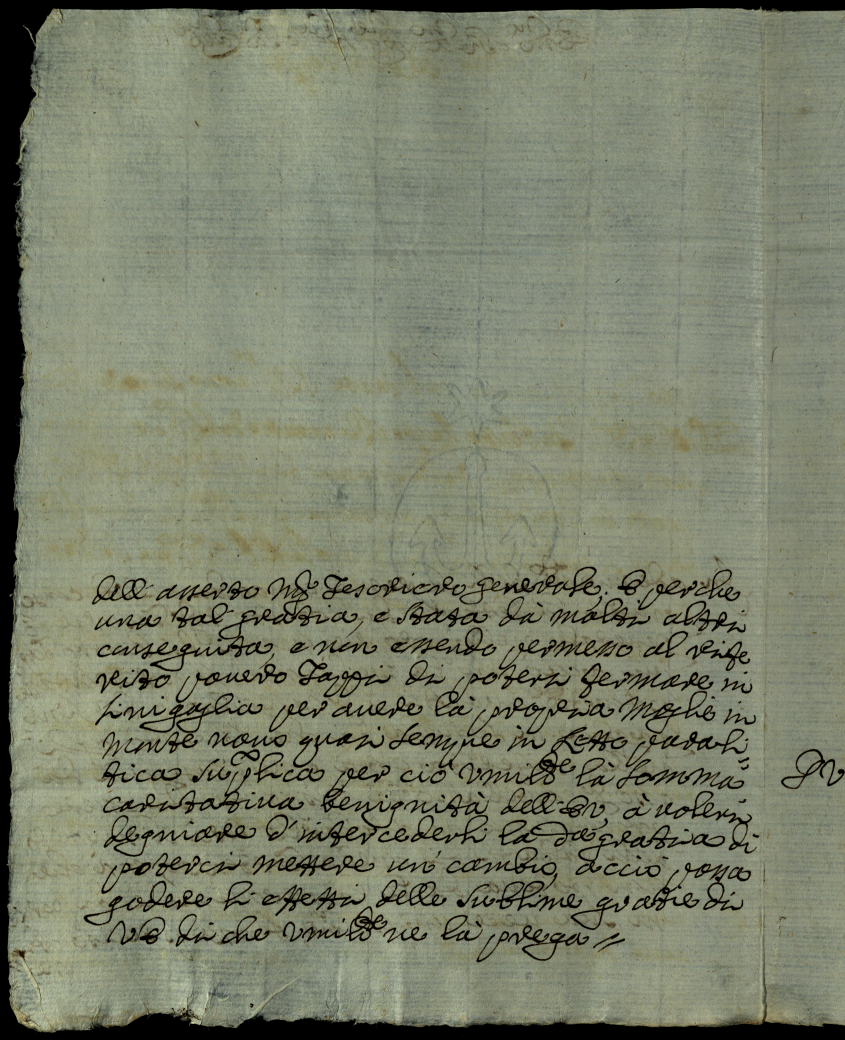 dell'asserto Mre Tesoriero generale. E perche
una tal' gratia, e stata dà molti altri
conseguita, e non essendo permesso al rife
rito povero Tappi di potersi fermare in
sinigaglia per avere la propria moglie in
monte novo quasi sempre in letto parali=
tica supplica per ciò vmilte là somma
caritativa benignità dell'EV, à volersi
degniare d'intercederli la da gratia di
poterci mettere un' cambio, acciò possa
godere li effetti delle sublime gratie di
VE di che vmilte ne là prega //
PV